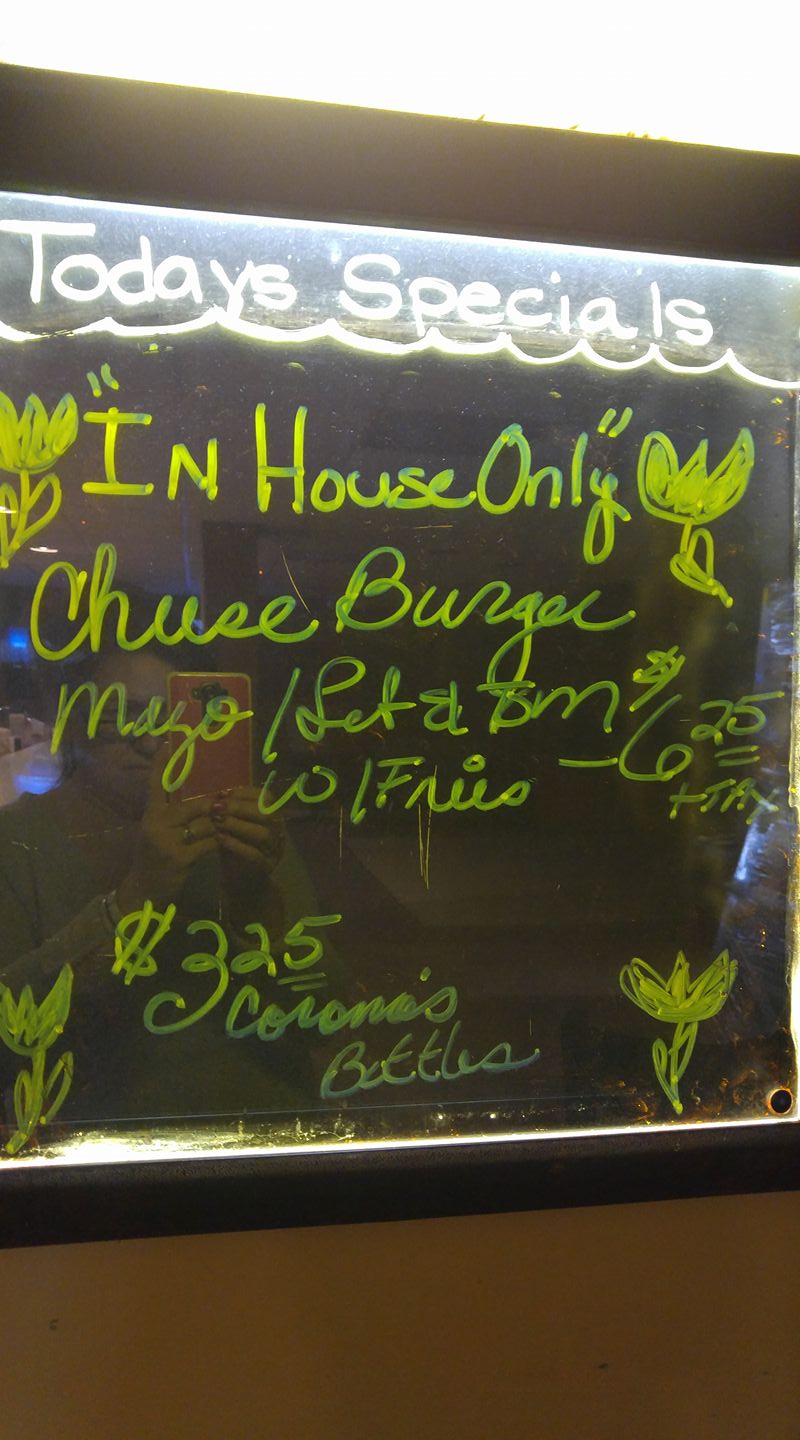 Todays Specials
"In House Only"
Cheese Burger
Mayo / Let & Tom $6.25
w/Fries — + TAX
$3.25
Corona's
Bottles